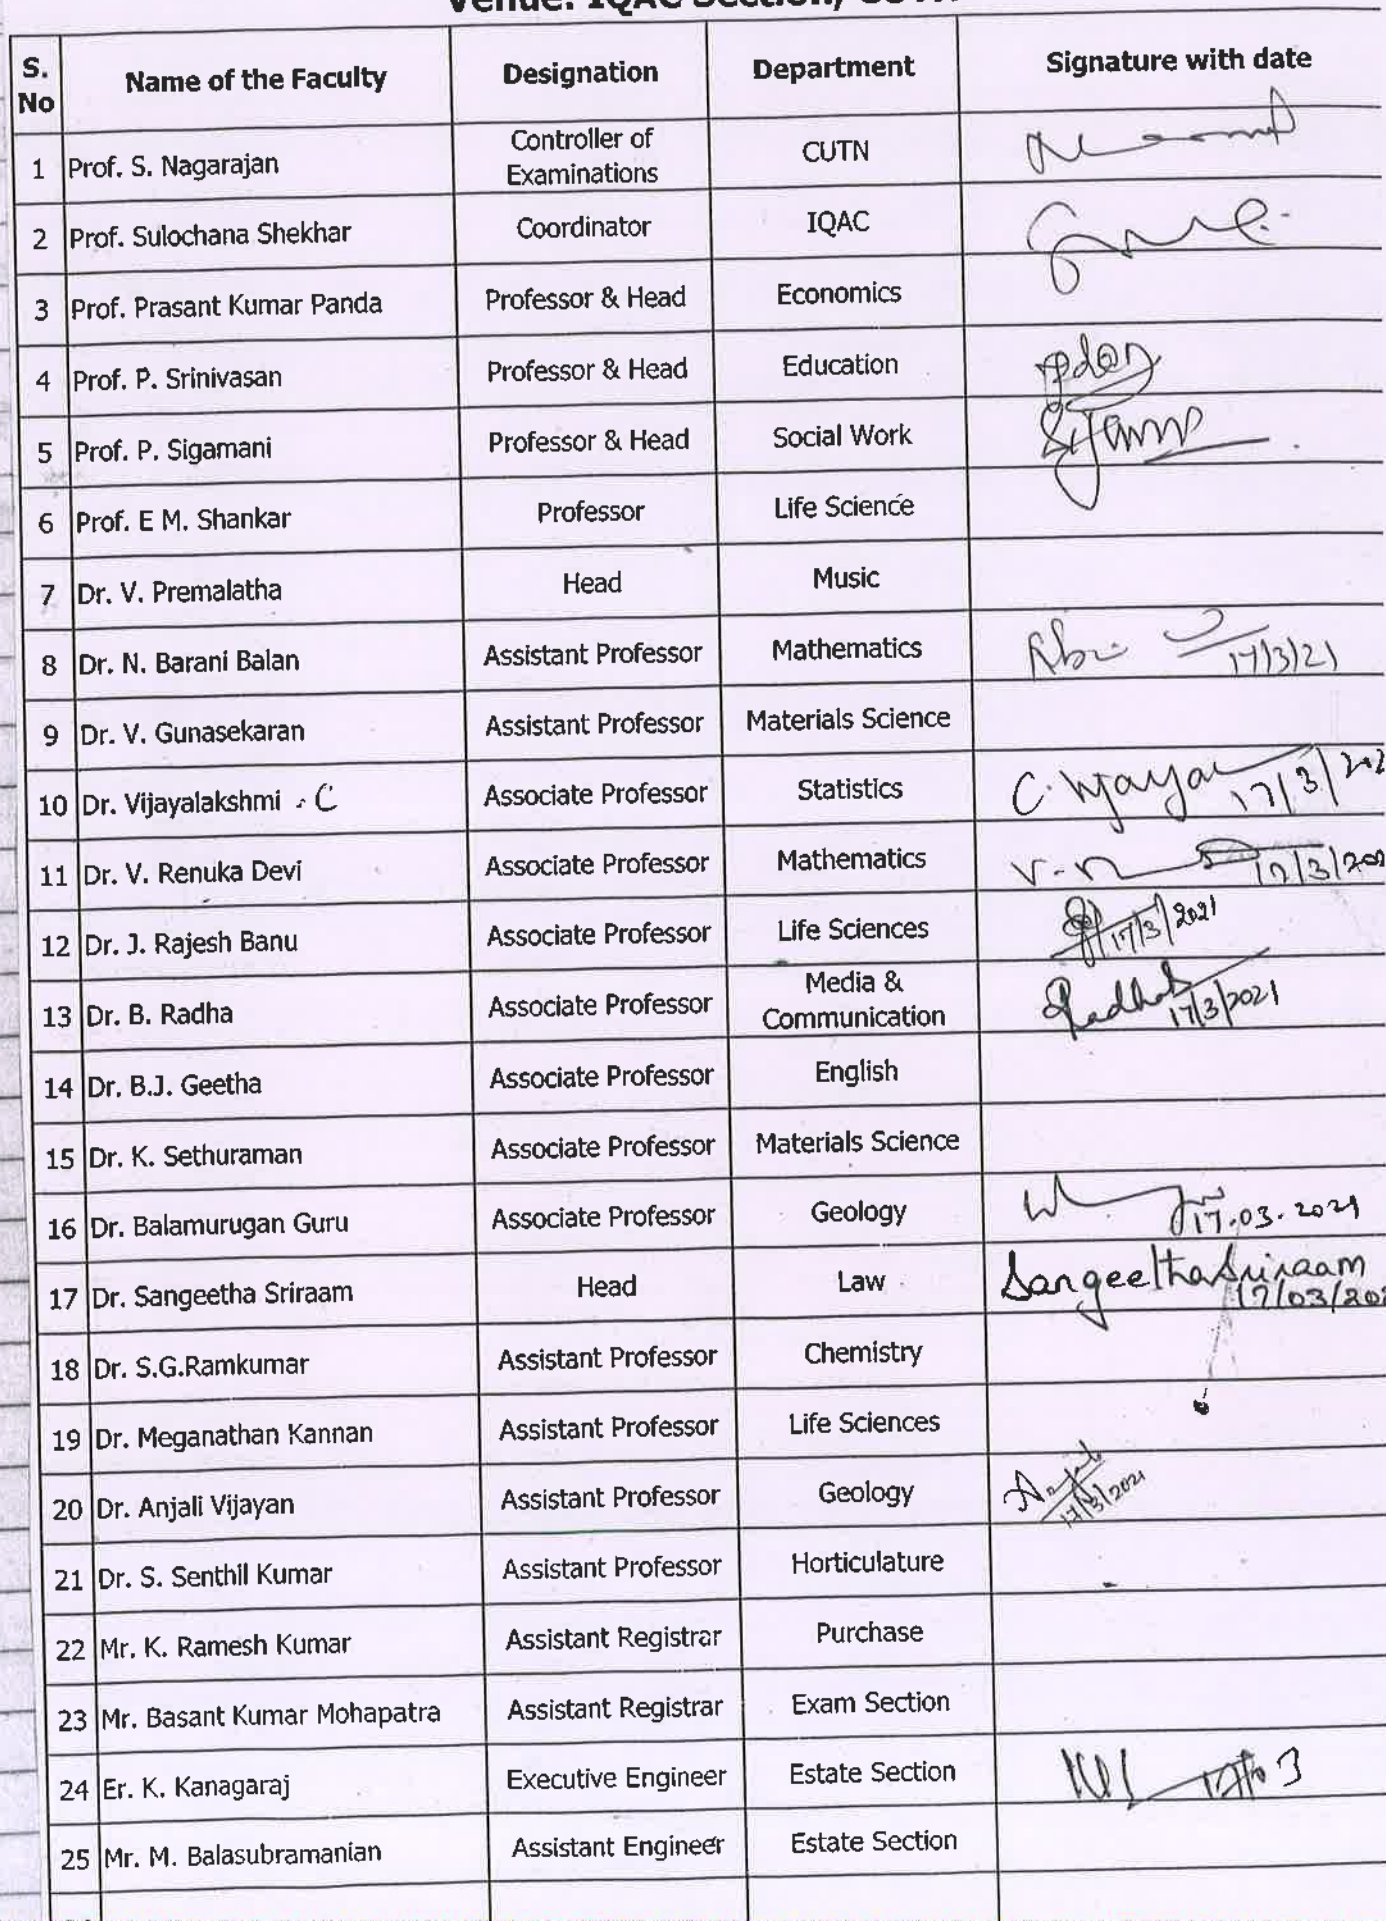 Venue: IQAC Section,
S. No Name of the Faculty Designation Department Signature with date
1 Prof. S. Nagarajan Controller of Examinations CUTN
2 Prof. Sulochana Shekhar Coordinator IQAC
3 Prof. Prasant Kumar Panda Professor & Head Economics
4 Prof. P. Srinivasan Professor & Head Education
5 Prof. P. Sigamani Professor & Head Social Work
6 Prof. E M. Shankar Professor Life Science
7 Dr. V. Premalatha Head Music
8 Dr. N. Barani Balan Assistant Professor Mathematics 17/3/21
9 Dr. V. Gunasekaran Assistant Professor Materials Science
10 Dr. Vijayalakshmi . C Associate Professor Statistics C. 17/3/202
11 Dr. V. Renuka Devi Associate Professor Mathematics 17/3/202
12 Dr. J. Rajesh Banu Associate Professor Life Sciences 17/3/2021
13 Dr. B. Radha Associate Professor Media & Communication Radha 17/3/2021
14 Dr. B.J. Geetha Associate Professor English
15 Dr. K. Sethuraman Associate Professor Materials Science
16 Dr. Balamurugan Guru Associate Professor Geology 17.03.2021
17 Dr. Sangeetha Sriraam Head Law Sangeetha Sriraam 17/03/202
18 Dr. S.G.Ramkumar Assistant Professor Chemistry
19 Dr. Meganathan Kannan Assistant Professor Life Sciences
20 Dr. Anjali Vijayan Assistant Professor Geology 17/3/2021
21 Dr. S. Senthil Kumar Assistant Professor Horticulature
22 Mr. K. Ramesh Kumar Assistant Registrar Purchase
23 Mr. Basant Kumar Mohapatra Assistant Registrar Exam Section
24 Er. K. Kanagaraj Executive Engineer Estate Section
25 Mr. M. Balasubramanian Assistant Engineer Estate Section